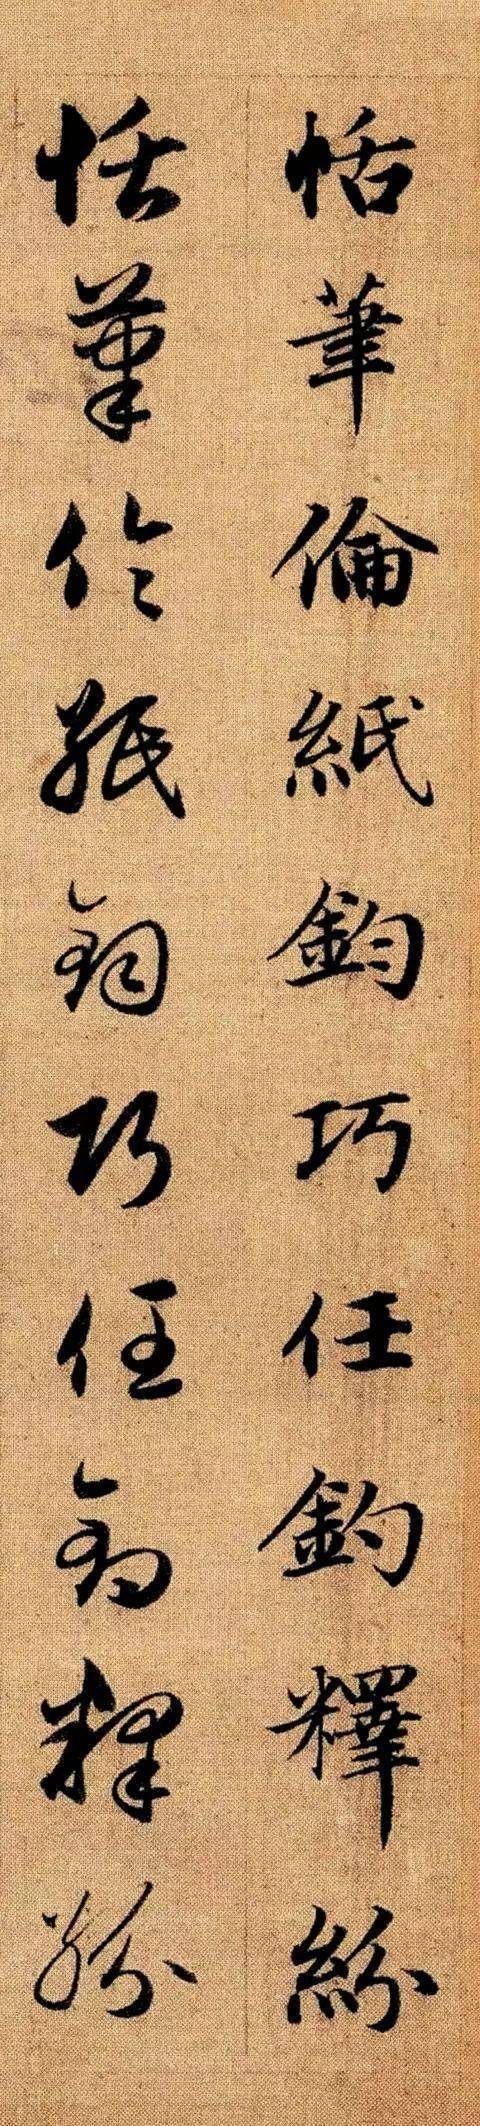 恬筆倫紙鈞巧任釣釋紛
恬筆倫紙鈞巧任釣釋紛